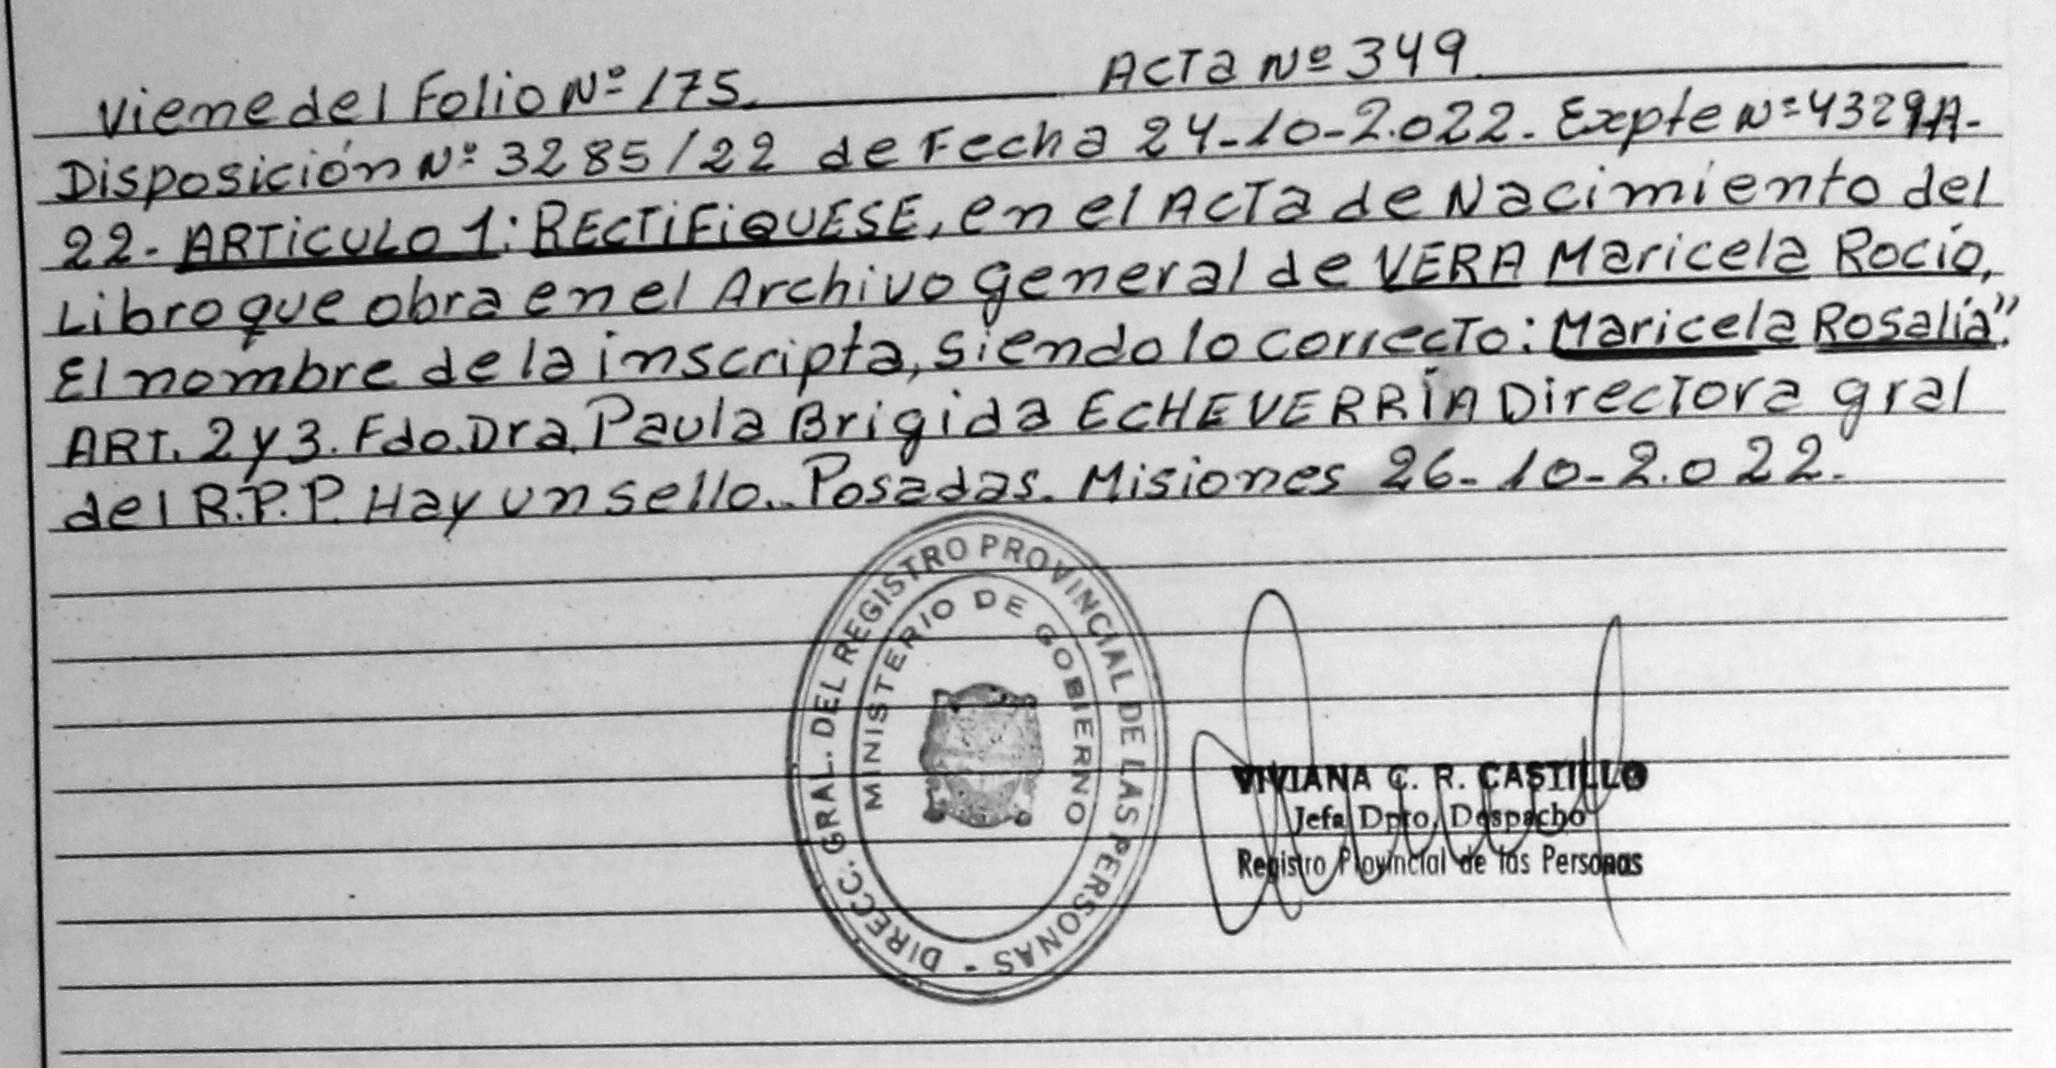 Viene del Folio Nº 175. Acta Nº 349
Disposición Nº 3285/22 de Fecha 24-10-2.022. Expte Nº 4329A-
22- ARTICULO 1: RECTIFIQUESE, en el Acta de Nacimiento del
Libro que obra en el Archivo general de VERA Maricela Rocío,
El nombre de la inscripta, siendo lo correcto: Maricela Rosalía".
ART. 2 y 3. Fdo. Dra. Paula Brigida ECHEVERRÍA Directora gral
del R.P.P. Hay un sello.. Posadas. Misiones 26-10-2.022.
DIRECC. GRAL. DEL REGISTRO PROVINCIAL DE LAS PERSONAS -
MINISTERIO DE GOBIERNO
VIVIANA C. R. CASTILLO
Jefa Dpto. Despacho
Registro Provincial de las Personas